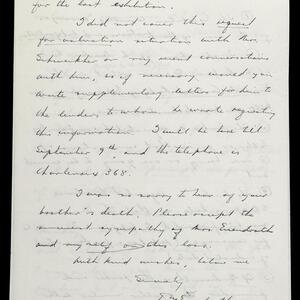 for the last exhibition.
I did not cover this request
for valuation insertion with Mr.
in my recent conversations
with him, so if necessary would you
write supplementary letters for him to
the lenders to whom he wrote requesting
this information. I will be here till
September 9th and the telephone is
Charlevoix 368.
I was so sorry to hear of your
brother's death. Please accept the
sincerest sympathy of Mrs. Eisendrath
and myself on this loss.
With kind wishes, believe me
Sincerely